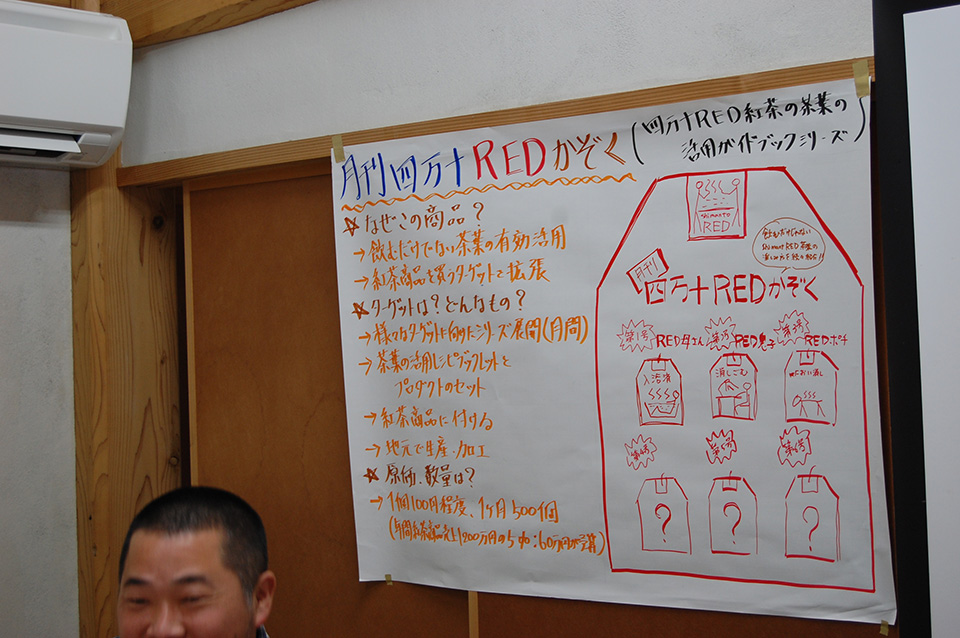 月刊四万十REDかぞく
(四万十RED紅茶の茶葉の
活用ガイドブックシリーズ)
☆なぜこの商品?
→飲むだけでない茶葉の有効活用
→紅茶商品を買うターゲットを拡張
☆ターゲットは?どんなもの?
→様々なターゲットに向けたシリーズ展開(月間)
→茶葉の活用レシピブックレットと
プロダクトのセット
→紅茶商品に付ける
→地元で生産・加工
☆原価、数量は?
→1個100円程度、1ヶ月500個
(年間紅茶商品売上1200万円の5%:60万円が予算)
Shimanto
RED
飲むだけじゃない
Shimanto RED 茶葉の
月刊
四万十REDかぞく
第1号
RED母さん
第2号
RED息子
第3号
REDポチ
入浴液
消しごむ
におい消し
第4号
第5号
第6号
?
?
?